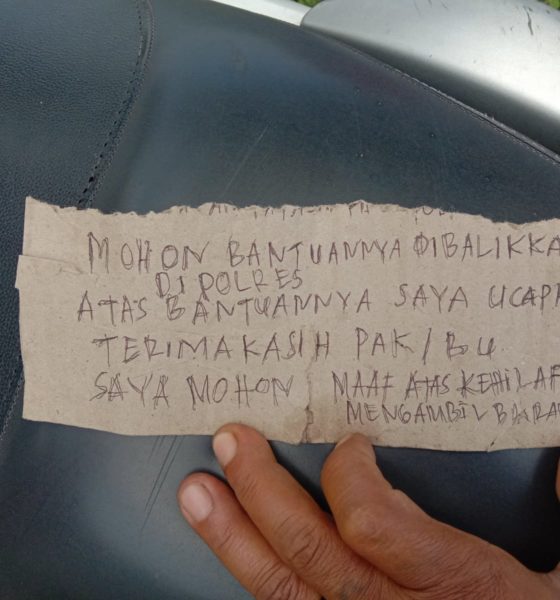 MOHON BANTUANNYA DIBALIKKA
DI POLRES
ATAS BANTUANNYA SAYA UCAP
TERIMAKASIH PAK/BU
SAYA MOHON MAAF ATAS KEHILAF
MENGAMBIL BARA